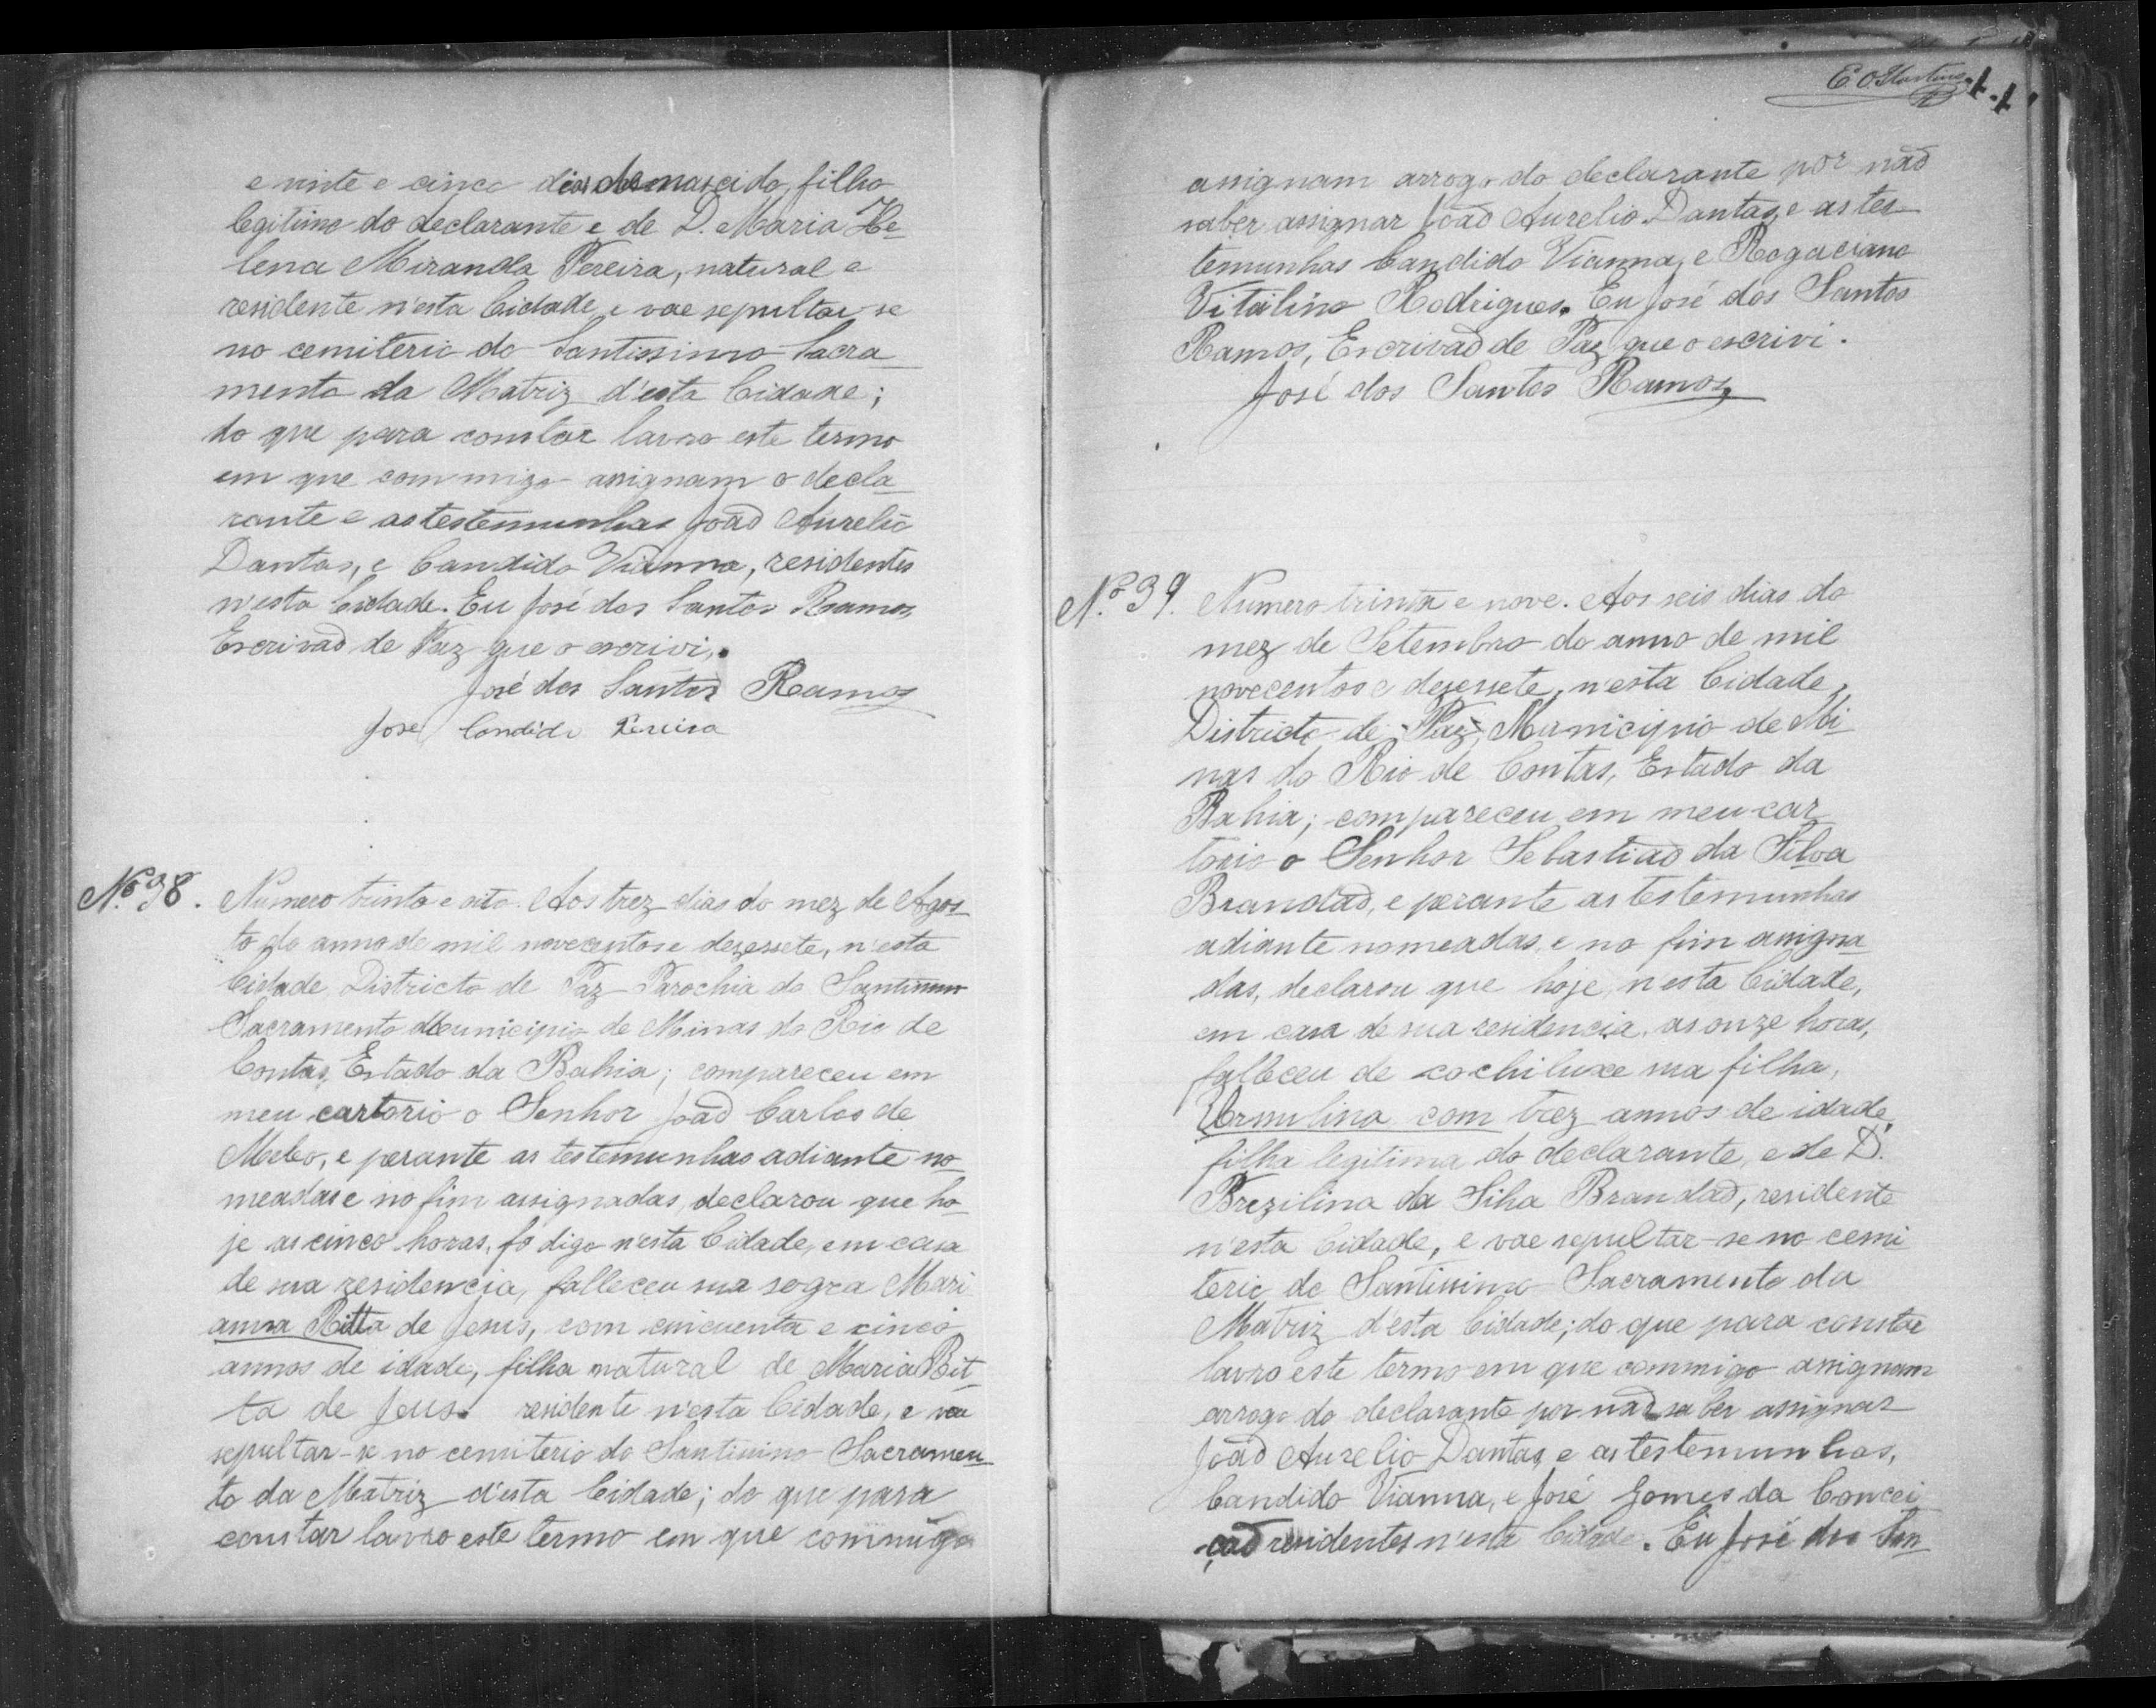 e vinte e cinco dias de nascido, filho
legitimo do declarante e de D. Maria He-
lena Miranda Pereira, natural e
residente n'esta Cidade, e vae sepultar-se
no cemiterio do Santissimo Sacra-
mento da Matriz d'esta Cidade;
do que para constar lavro este termo
em que commigo assignam o decla-
rante e as testemunhas João Aurelio
Dantas, e Candido Vianna, residentes
n'esta Cidade. Eu José dos Santos Ramos,
Escrivão de Paz que o escrivi.
José dos Santos Ramos
José Candido Pereira
Nº 38. Numero trinta e oito. Aos trez dias do mez de Agos-
to do anno de mil novecentos e dezessete, n'esta
Cidade, Districto de Paz Parochia do Santissimo
Sacramento Municipio de Minas do Rio de
Contas, Estado da Bahia; compareceu em
meu cartorio o Senhor João Carlos de
Mello, e perante as testemunhas adiante no-
meadas e no fim assignadas, declarou que ho-
je as cinco horas, fo digo n'esta Cidade, em casa
de sua residencia, falleceu sua sogra Mari
anna Ritta de Jesus, com cincuenta e cinco
annos de idade, filha natural de Maria Rit-
ta de Jesus. residente n'esta Cidade, e vae
sepultar-se no cemiterio do Santissimo Sacramen-
to da Matriz d'esta Cidade; do que para
constar lavro este termo em que commigo
E. O. Martins
assignam arrogo do declarante por não
saber assignar João Aurelio Dantas, e as tes-
temunhas Candido Vianna, e Rogaciano
Vitalino Rodrigues. Eu José dos Santos
Ramos, Escrivão de Paz que o escrivi.
José dos Santos Ramos
Nº 39. Numero trinta e nove. Aos seis dias do
mez de Setembro do anno de mil
novecentos e dezessete, n'esta Cidade,
Districto de Paz, Municipio de Mi-
nas do Rio de Contas, Estado da
Bahia; compareceu em meu car-
torio o Senhor Sebastião da Silva
Brandão, e perante as testemunhas
adiante nomeadas, e no fim assigna-
das, declarou que hoje, n'esta Cidade,
em casa de sua residencia, as onze horas,
falleceu de cochiluxe sua filha,
Ursulina com trez annos de idade,
filha legitima do declarante, e de D.
Brezilina da Silva Brandão, residente
n'esta Cidade, e vae sepultar-se no cemi
terio do Santissimo Sacramento da
Matriz d'esta Cidade; do que para constar
lavro este termo em que commigo assignam
arrogo do declarante por não saber assignar
João Aurelio Dantas, e as testemunhas,
Candido Vianna, e José Gomes da Concei
ção residentes n'esta Cidade. Eu José dos San-